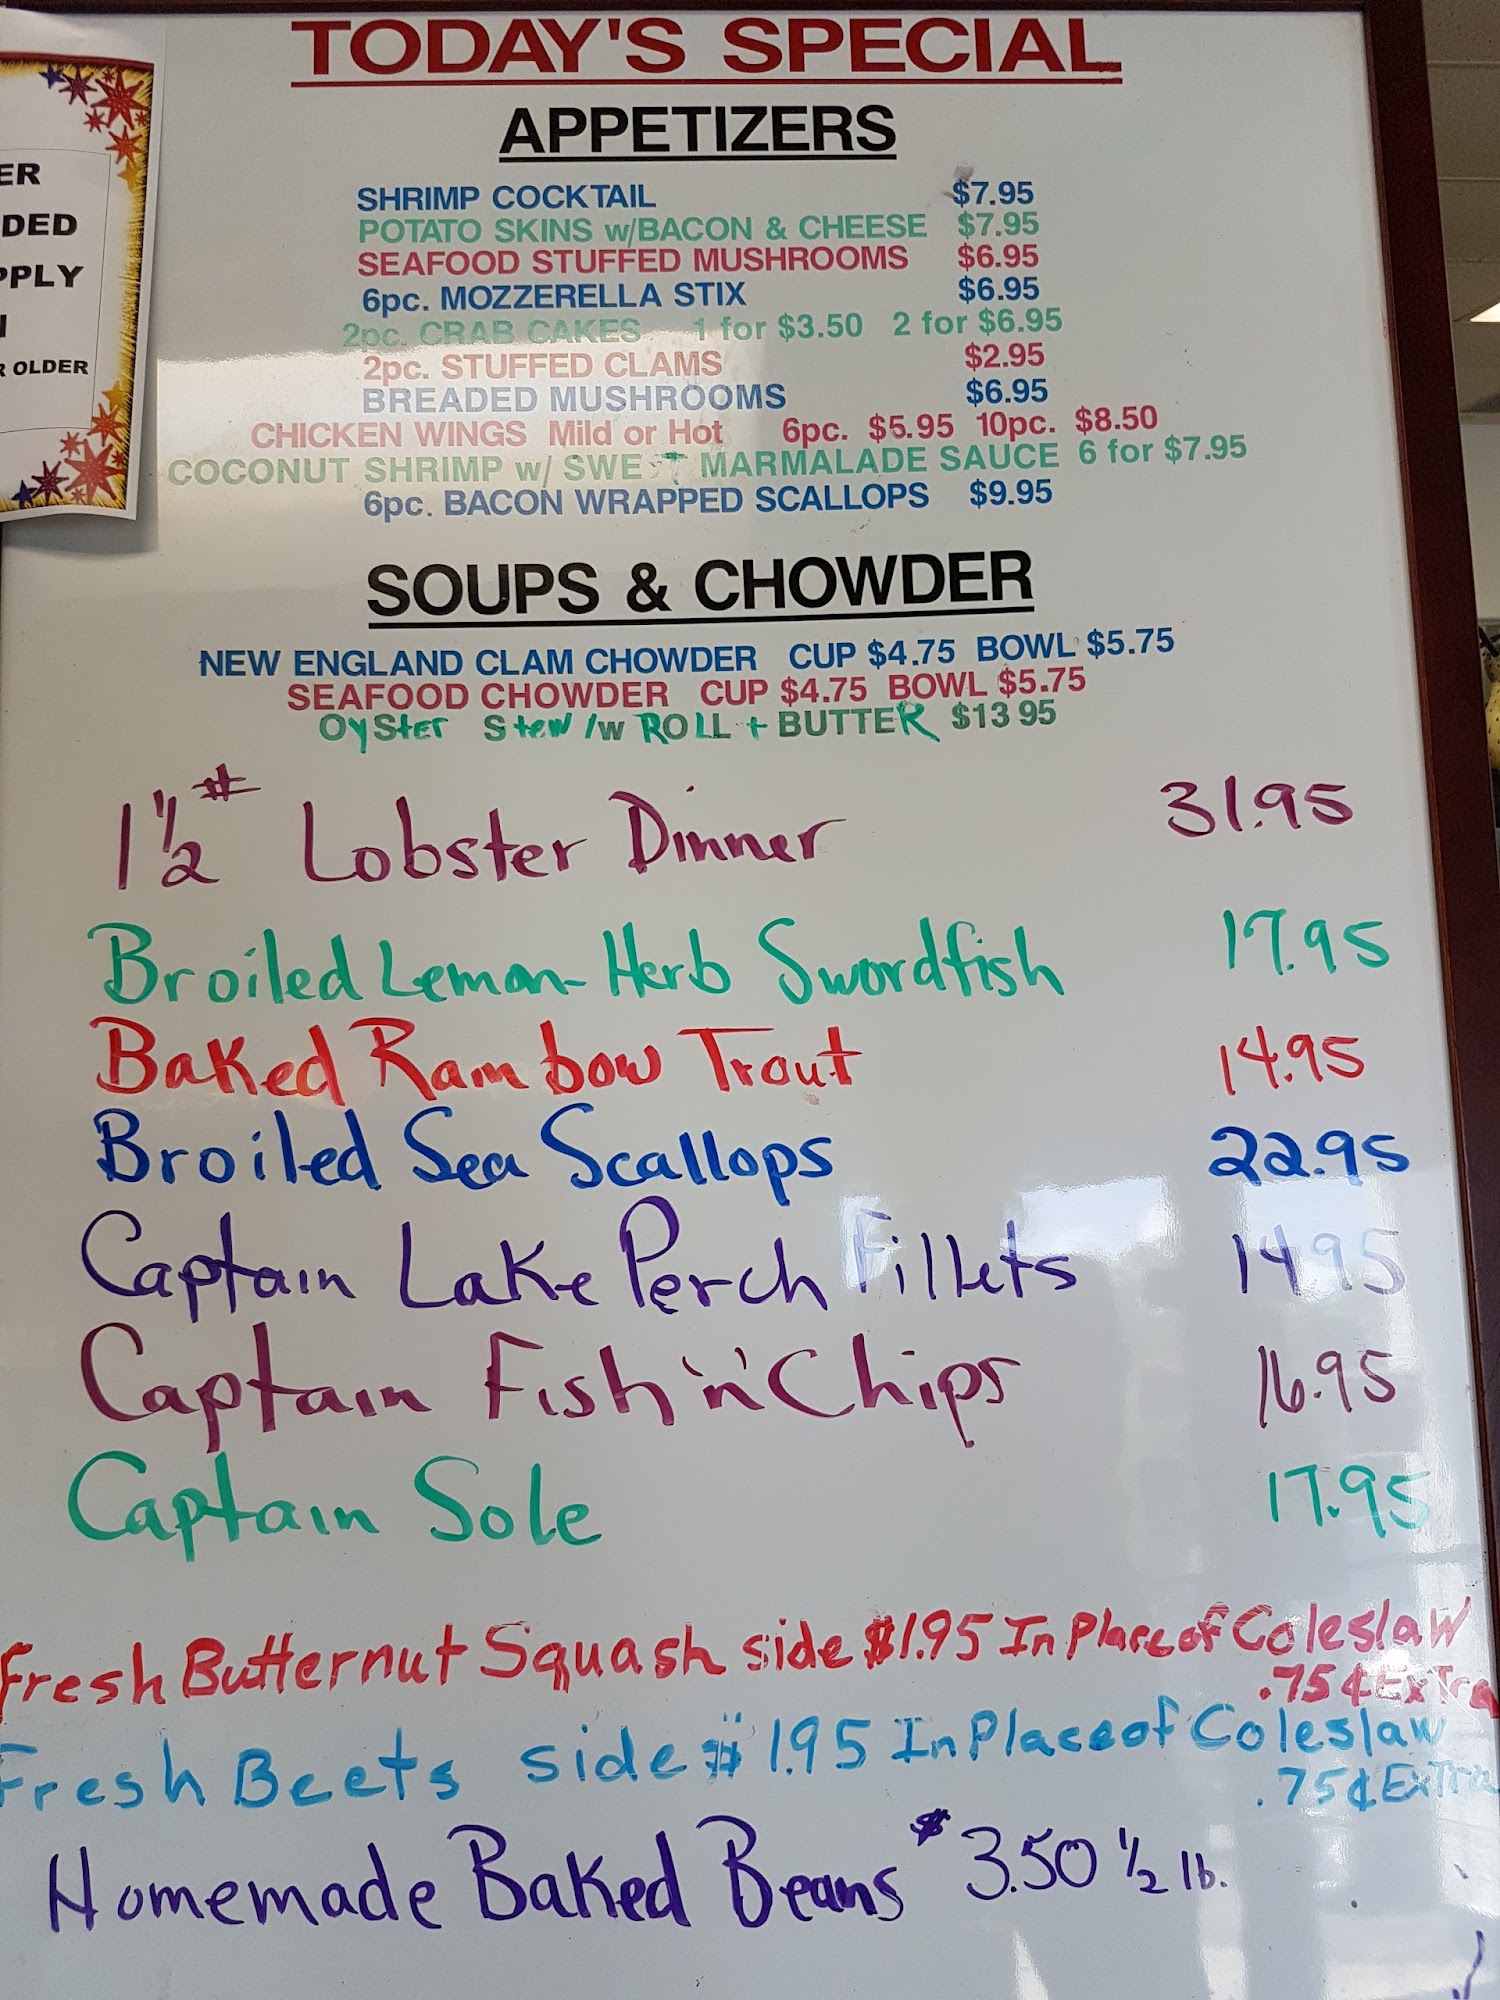 ER
DED
PPLY
R OLDER
TODAY'S SPECIAL
APPETIZERS
SHRIMP COCKTAIL $7.95
POTATO SKINS w/BACON & CHEESE $7.95
SEAFOOD STUFFED MUSHROOMS $6.95
6pc. MOZZERELLA STIX $6.95
2pc. CRAB CAKES 1 for $3.50 2 for $6.95
2pc. STUFFED CLAMS $2.95
BREADED MUSHROOMS $6.95
CHICKEN WINGS Mild or Hot 6pc. $5.95 10pc. $8.50
COCONUT SHRIMP w/ SWE T MARMALADE SAUCE 6 for $7.95
6pc. BACON WRAPPED SCALLOPS $9.95
SOUPS & CHOWDER
NEW ENGLAND CLAM CHOWDER CUP $4.75 BOWL $5.75
SEAFOOD CHOWDER CUP $4.75 BOWL $5.75
OySter Stew /w ROLL + BUTTER $13 95
1 1/2 # Lobster Dinner 31.95
Broiled Lemon-Herb Swordfish 17.95
Baked Rainbow Trout 14.95
Broiled Sea Scallops 22.95
Captain Lake Perch Fillets 14.95
Captain Fish 'n' Chips 16.95
Captain Sole 17.95
Fresh Butternut Squash side $1.95 In Place of Coleslaw
.75¢ Extra
Fresh Beets side $1.95 In Place of Coleslaw
.75¢ Extra
Homemade Baked Beans $3.50 1/2 lb.